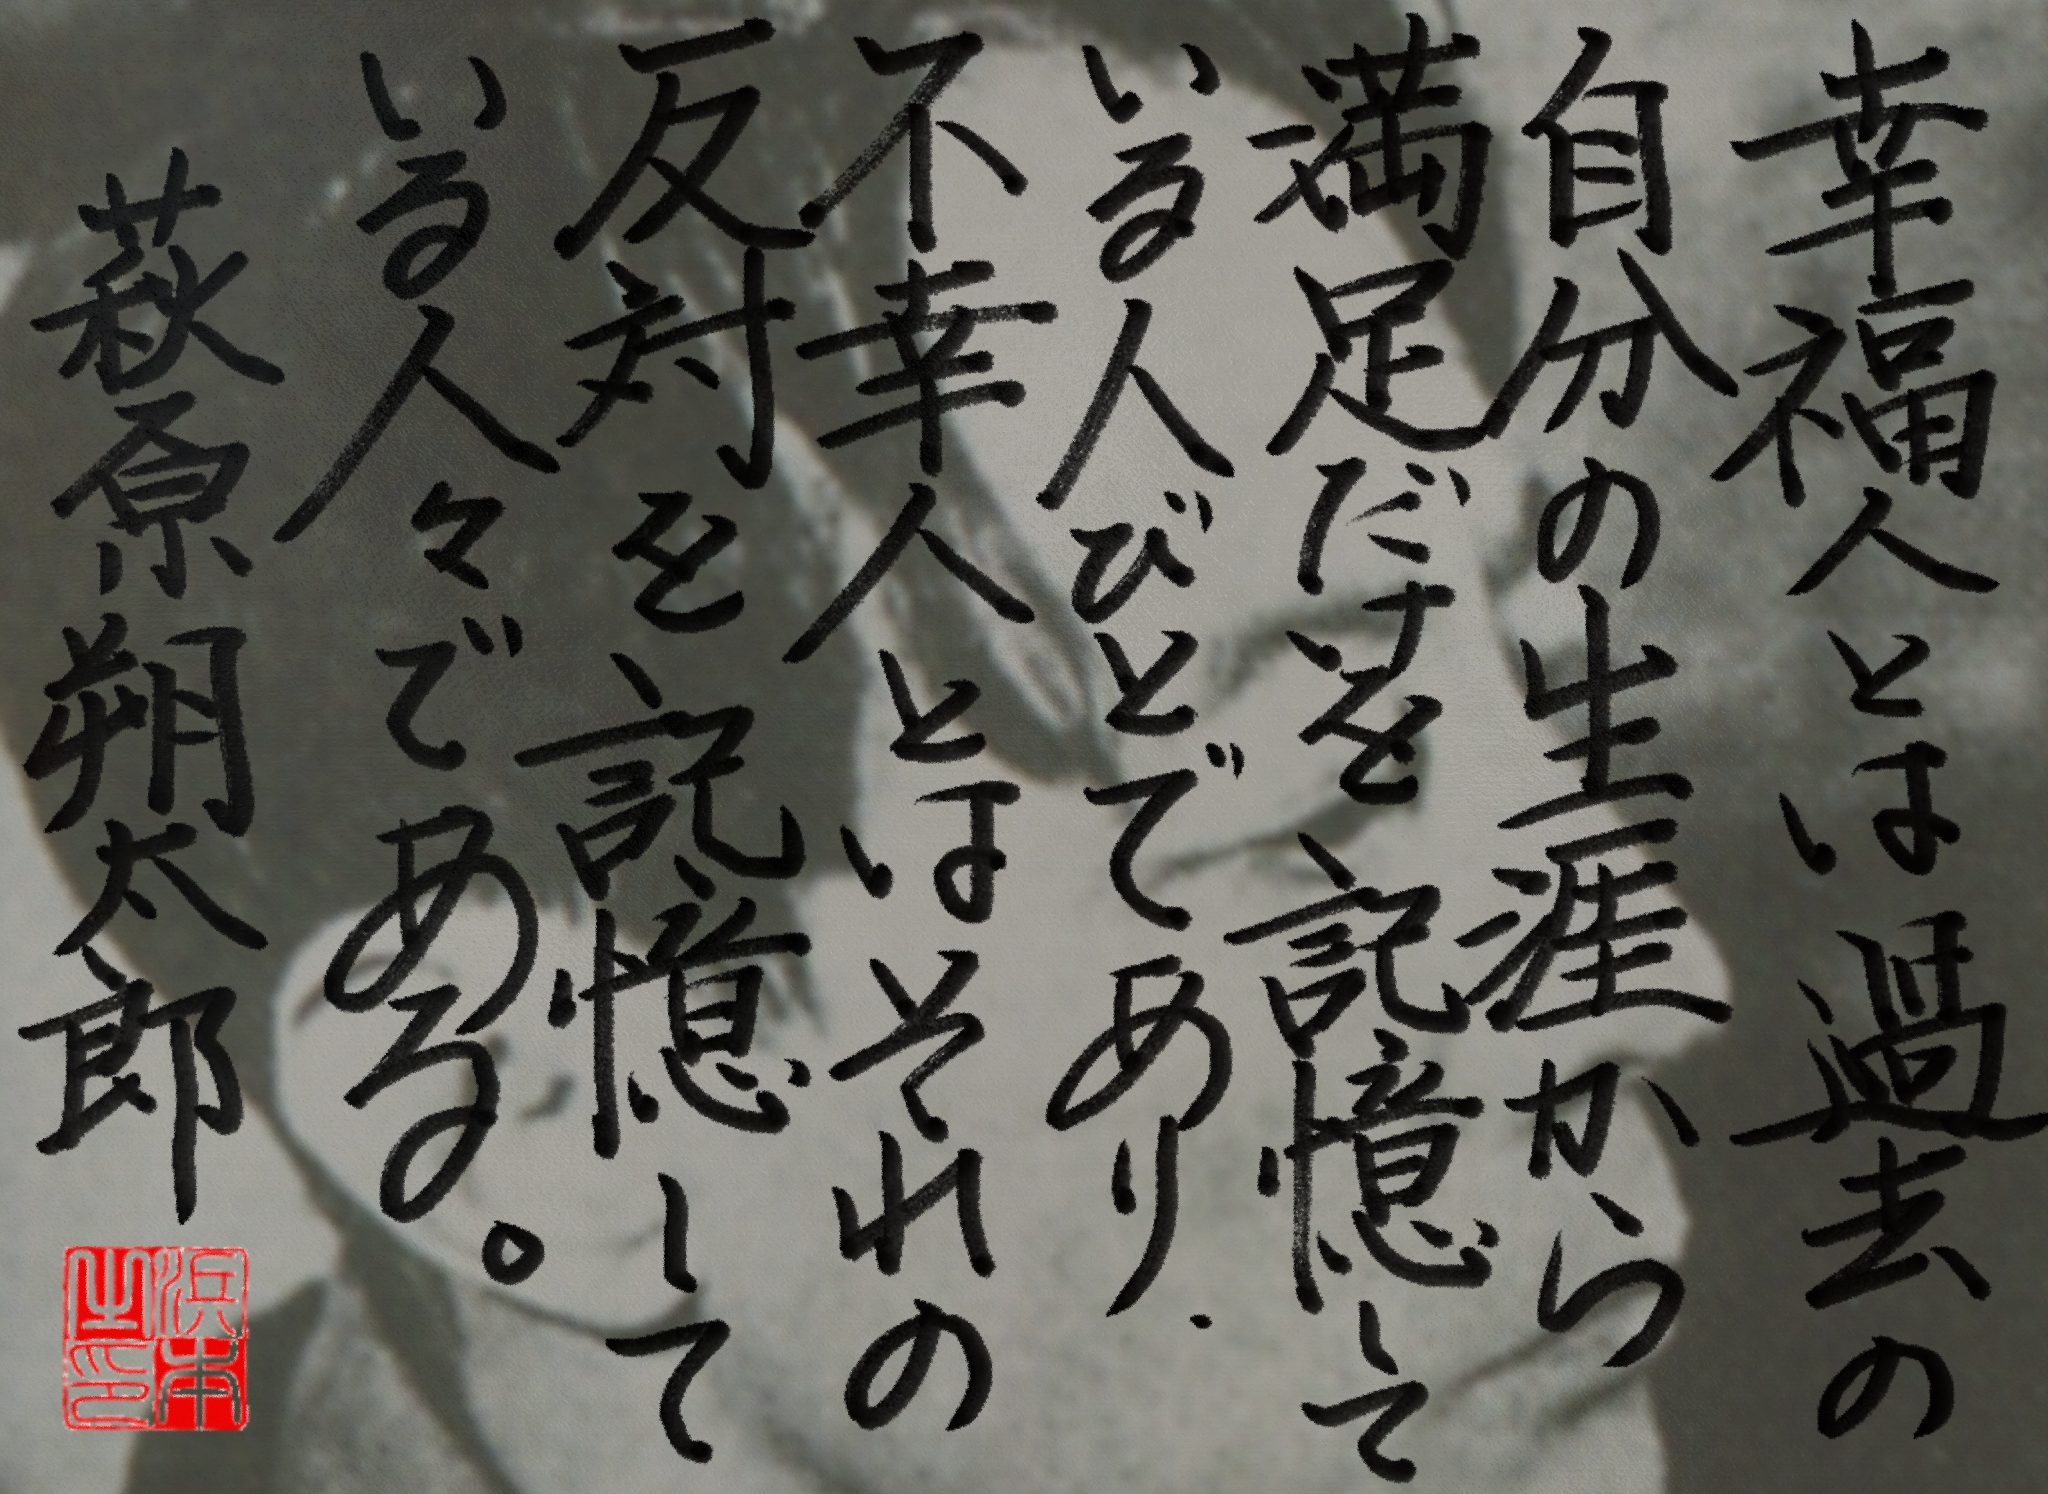 幸福人とは過去の
自分の生涯から
満足だけを記憶して
いる人びとであり.
不幸人とはそれの
反対を記憶して
いる人々である。
萩原朔太郎
浜本
之印